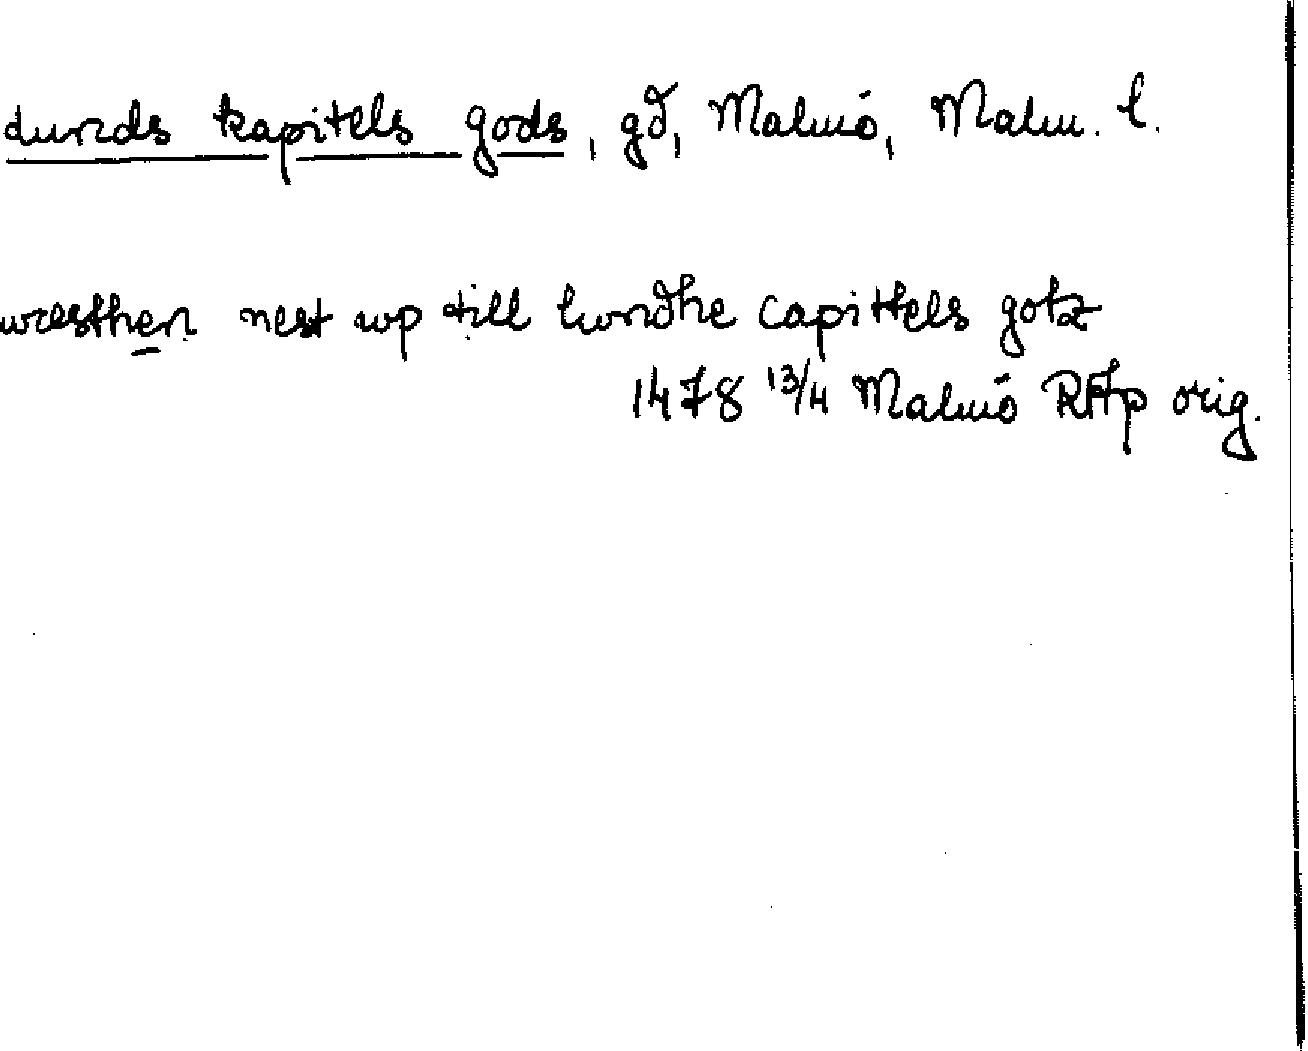 Lunds kapitels gods, gd, Malmö, Malm. l.
wæsthen nest wp till lundhe capittels gotz
1478 13/4 Malmö RAp orig.